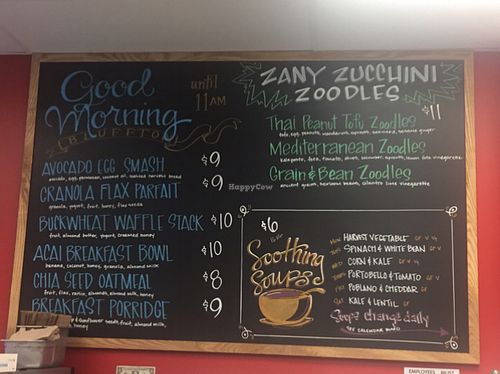 Good Morning
BLUFFTON
until
11 AM
AVOCADO EGG SMASH $9
avocado, egg, parmesan, coconut oil, toasted harvest bread
GRANOLA FLAX PARFAIT $9
granola, yogurt, fruit, honey, flax seeds
BUCKWHEAT WAFFLE STACK $10
fruit, almond butter, yogurt, creamed honey
ACAI BREAKFAST BOWL $10
banana, coconut, honey, granola, almond milk
CHIA SEED OATMEAL $8
fruit, flax, raisin, almonds, almond milk, honey
BREAKFAST PORRIDGE $9
sunflower seeds, fruit, almond milk,
honey
ZANY ZUCCHINI
ZOODLES
$11
Thai Peanut Tofu Zoodles
tofu, egg, peanuts, mandarins, sprouts, sesame ginger
Mediterranean Zoodles
kalamata, feta, tomato, sprouts, lemon feta vinaigrette
Grain & Bean Zoodles
ancient grains, heirloom beans, cilantro lime vinaigrette
$6
Soothing
Soups
MON HARVEST VEGETABLE GF V
TUES SPINACH & WHITE BEAN GF V
WED CORN & KALE GF V
THURS PORTOBELLO & TOMATO GF V
FRI POBLANO & CHEDDAR GF
SAT KALE & LENTIL GF V
Soups change daily
SEE CALENDAR
HappyCow
EMPLOYEES MUST